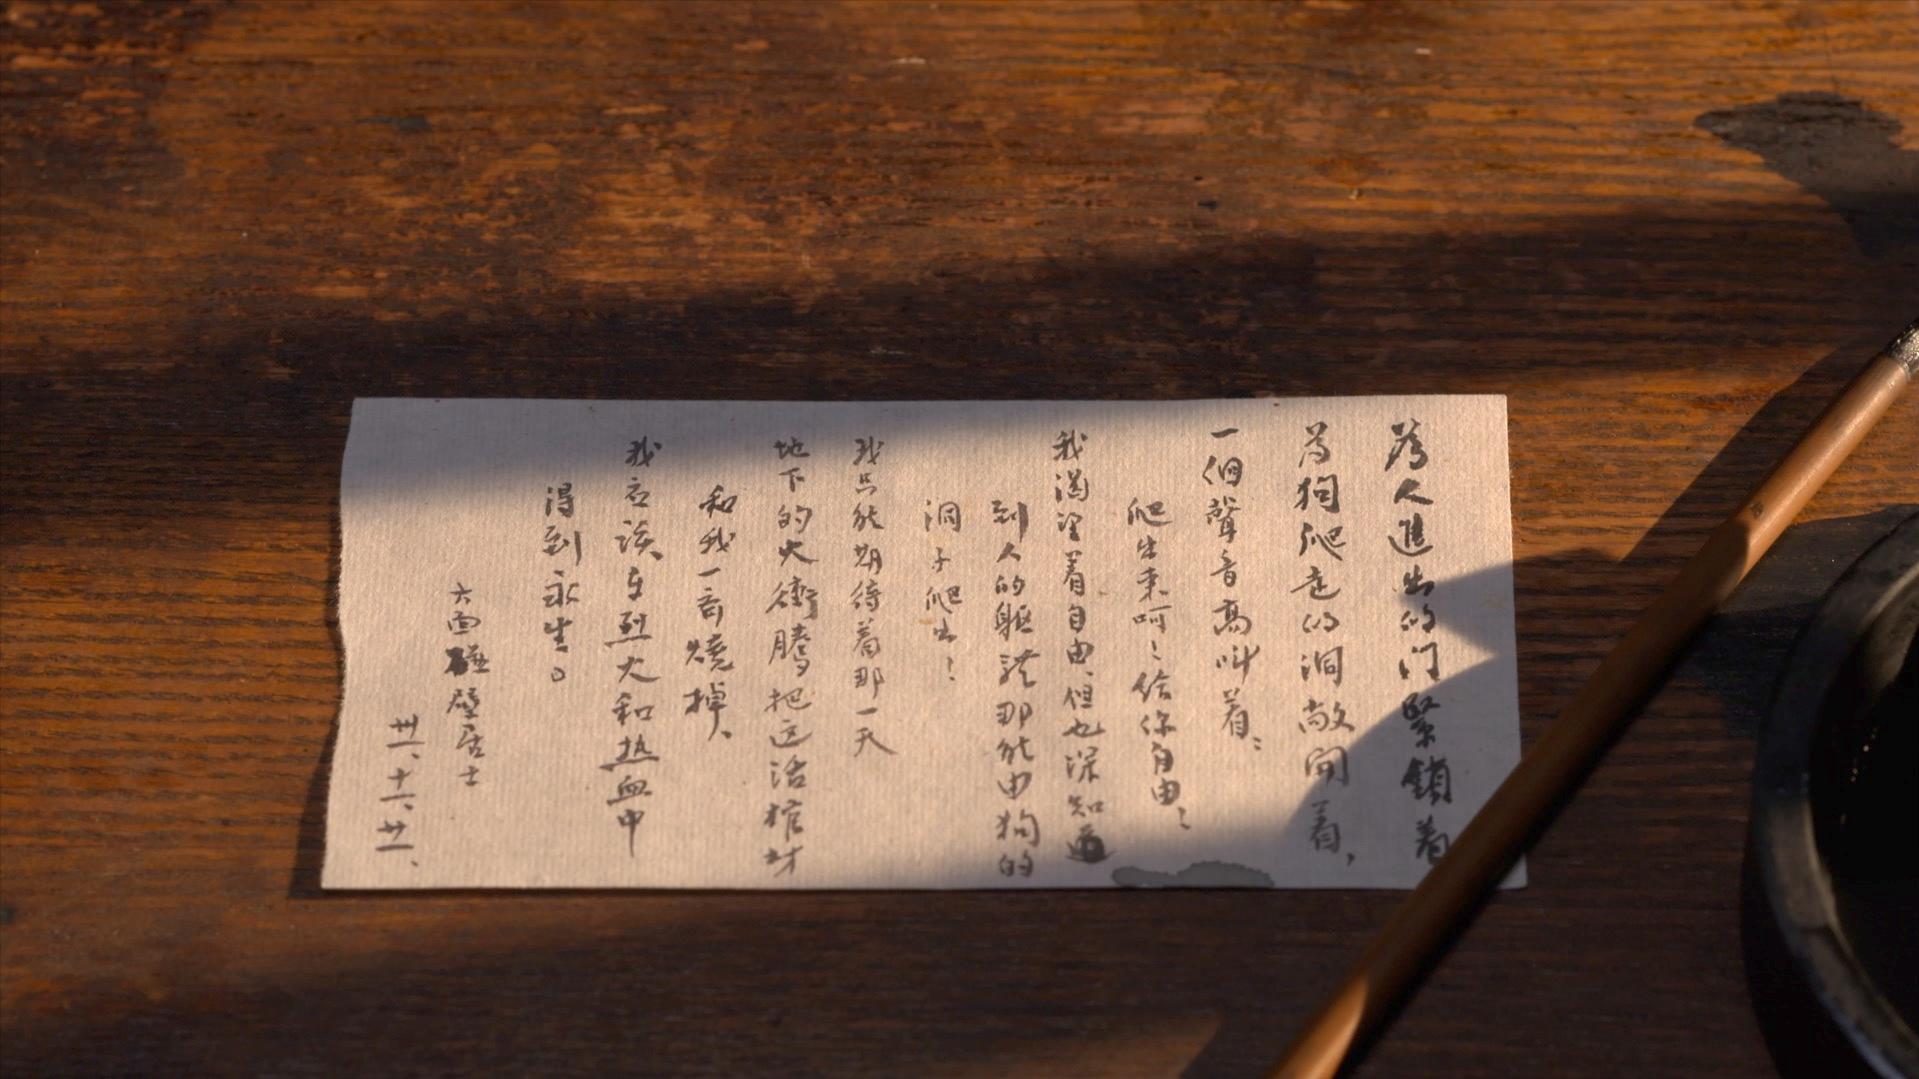 為人進出的门緊鎖着
为狗爬走的洞敞開着，
一個聲音高叫着：
爬出来呵！给你自由！
我渴望着自由，但也深知道
到人的躯体那能由狗的
洞子爬出！
我只能期待着那一天
地下的火衝腾把这活棺材
和我一齐燒掉、
我应该在烈火和热血中
得到永生。
六面碰壁居士
卅一、十一、廿一、